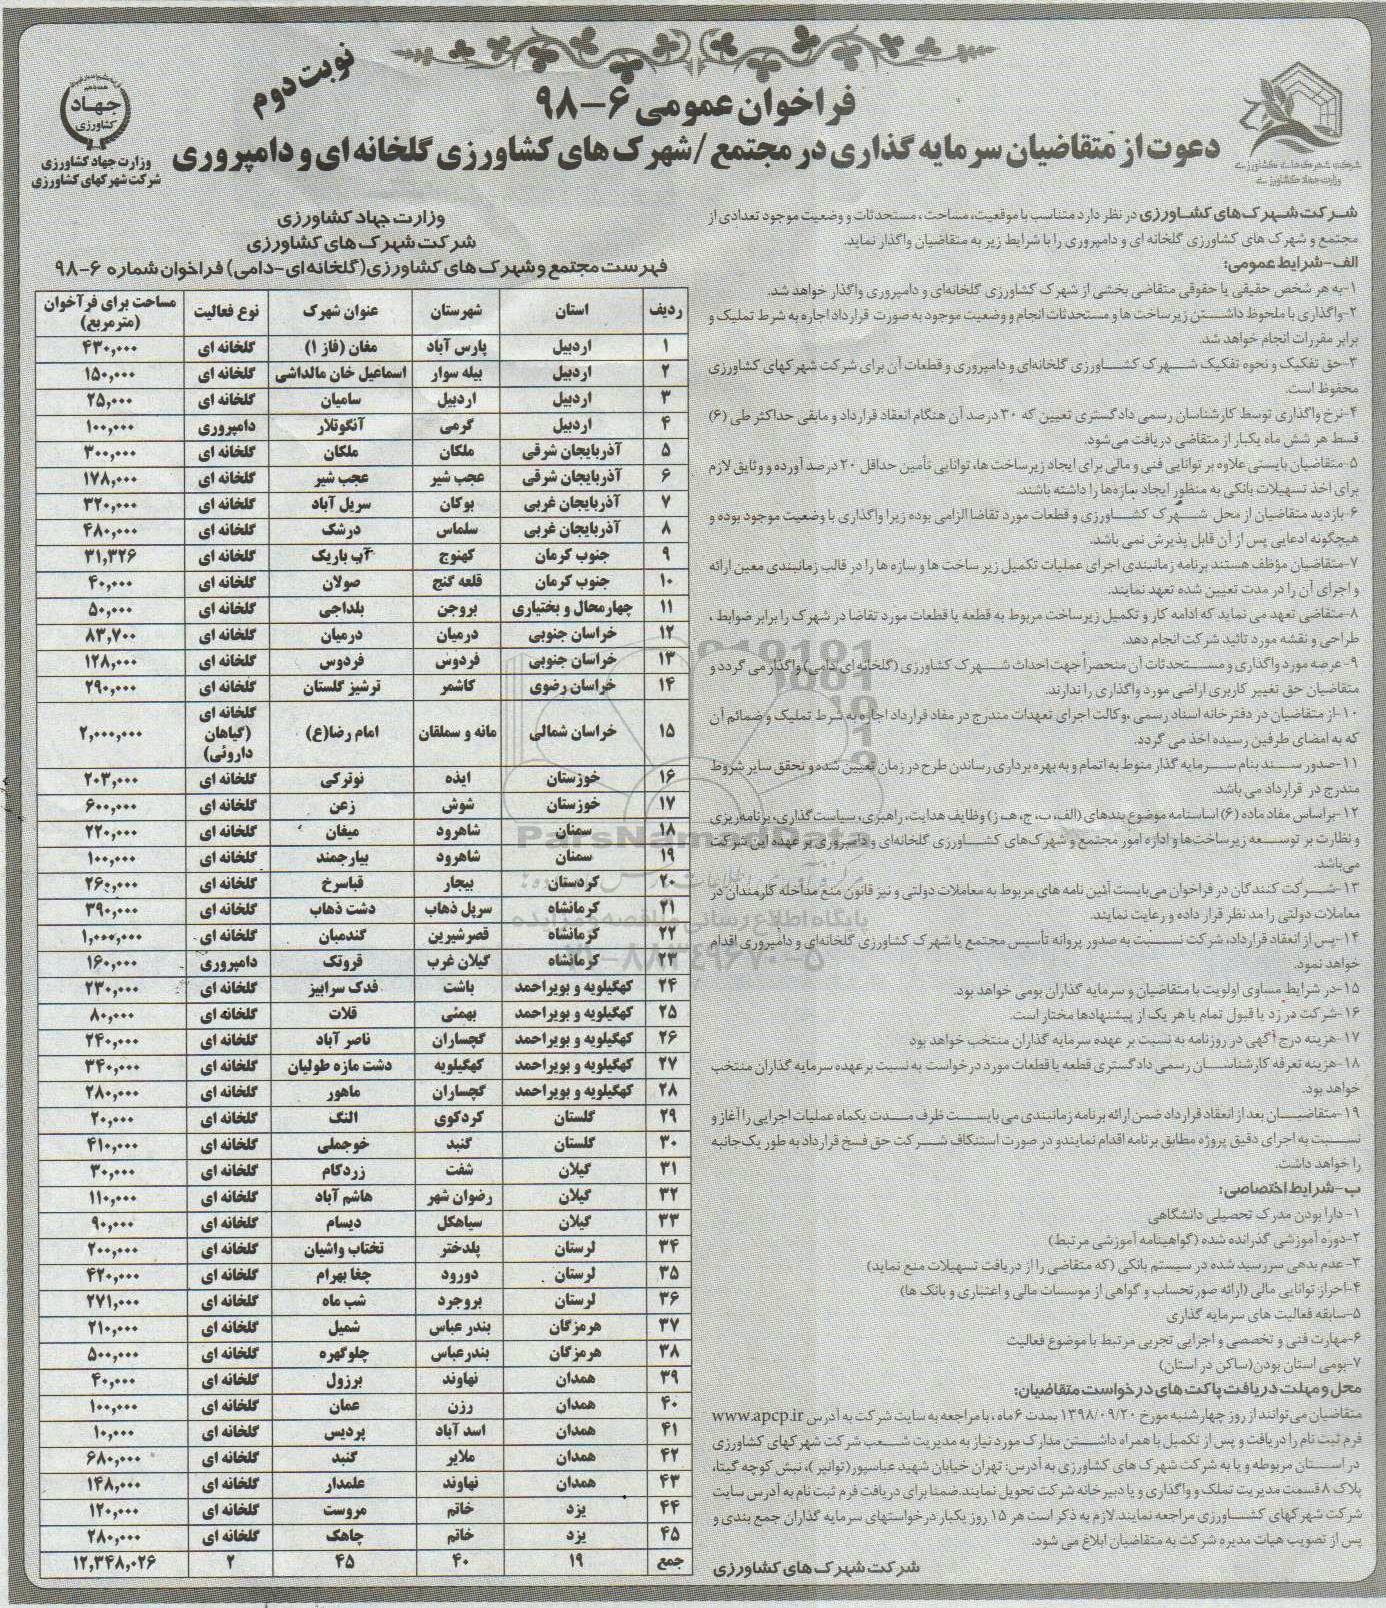 نوبت دوم
فراخوان عمومی ۶-۹۸
دعوت از متقاضیان سرمایه گذاری در مجتمع/شهرک های کشاورزی گلخانه ای و دامپروری
جهاد
کشاورزی
وزارت جهاد کشاورزی
شرکت شهرکهای کشاورزی
شرکت شهرک های کشاورزی
وزارت جهاد کشاورزی
شرکت شهرک های کشاورزی در نظر دارد متناسب با موقعیت، مساحت، مستحدثات و وضعیت موجود تعدادی از
مجتمع و شهرک های کشاورزی گلخانه ای و دامپروری را با شرایط زیر به متقاضیان واگذار نماید.
الف-شرایط عمومی:
۱-به هر شخص حقیقی یا حقوقی متقاضی بخشی از شهرک کشاورزی گلخانه‌ای و دامپروری واگذار خواهد شد.
۲-واگذاری با ملحوظ داشتن زیرساخت ها و مستحدثات انجام و وضعیت موجود به صورت قرارداد اجاره به شرط تملیک و
برابر مقررات انجام خواهد شد.
۳-حق تفکیک و نحوه تفکیک شهرک کشاورزی گلخانه‌ای و دامپروری و قطعات آن برای شرکت شهرکهای کشاورزی
محفوظ است.
۴-نرخ واگذاری توسط کارشناسان رسمی دادگستری تعیین که ۳۰ درصد آن هنگام انعقاد قرارداد و مابقی حداکثر طی (۶)
قسط هر شش ماه یکبار از متقاضی دریافت می‌شود.
۵-متقاضیان بایستی علاوه بر توانایی فنی و مالی برای ایجاد زیرساخت ها، توانایی تأمین حداقل ۲۰ درصد آورده و وثایق لازم
برای اخذ تسهیلات بانکی به منظور ایجاد سازه‌ها را داشته باشند.
۶-بازدید متقاضیان از محل شهرک کشاورزی و قطعات مورد تقاضا الزامی بوده زیرا واگذاری با وضعیت موجود بوده و
هیچگونه ادعایی پس از آن قابل پذیرش نمی باشد.
۷-متقاضیان مؤظف هستند برنامه زمانبندی اجرای عملیات تکمیل زیر ساخت ها و سازه ها را در قالب زمانبندی معین ارائه
و اجرای آن را در مدت تعیین شده تعهد نمایند.
۸-متقاضی تعهد می نماید که ادامه کار و تکمیل زیرساخت مربوط به قطعه یا قطعات مورد تقاضا در شهرک را برابر ضوابط ،
طراحی و نقشه مورد تائید شرکت انجام دهد.
۹-عرصه مورد واگذاری و مستحدثات آن منحصراً جهت احداث شهرک کشاورزی (گلخانه ای دامی) واگذار می گردد و
متقاضیان حق تغییر کاربری اراضی مورد واگذاری را ندارند.
۱۰-از متقاضیان در دفترخانه اسناد رسمی ،وکالت اجرای تعهدات مندرج در مفاد قرارداد اجاره به شرط تملیک و ضمائم آن
که به امضای طرفین رسیده اخذ می گردد.
۱۱-صدور سند بنام سرمایه گذار منوط به اتمام و به بهره برداری رساندن طرح در زمان تعیین شده و تحقق سایر شروط
مندرج در قرارداد می باشد.
۱۲-براساس مفاد ماده (۶) اساسنامه موضوع بندهای (الف، ب، ج، هـ، ز) وظایف هدایت، راهبری، سیاست گذاری، برنامه‌ریزی
و نظارت بر توسعه زیرساخت‌ها و اداره امور مجتمع و شهرک‌های کشاورزی گلخانه‌ای و دامپروری بر عهده این شرکت
می‌باشد.
۱۳-شرکت کنندگان در فراخوان می‌بایست آئین نامه های مربوط به معاملات دولتی و نیز قانون منع مداخله کارمندان در
معاملات دولتی را مد نظر قرار داده و رعایت نمایند.
۱۴-پس از انعقاد قرارداد، شرکت نسبت به صدور پروانه تأسیس مجتمع یا شهرک کشاورزی گلخانه‌ای و دامپروری اقدام
خواهد نمود.
۱۵-در شرایط مساوی اولویت با متقاضیان و سرمایه گذاران بومی خواهد بود.
۱۶-شرکت در رد یا قبول تمام یا هر یک از پیشنهادها مختار است.
۱۷-هزینه درج آگهی در روزنامه به نسبت بر عهده سرمایه گذاران منتخب خواهد بود
۱۸-هزینه تعرفه کارشناسان رسمی دادگستری قطعه یا قطعات مورد درخواست به نسبت بر عهده سرمایه گذاران منتخب
خواهد بود.
۱۹-متقاضیان بعد از انعقاد قرارداد ضمن ارائه برنامه زمانبندی می بایست ظرف مدت یکماه عملیات اجرایی را آغاز و
نسبت به اجرای دقیق پروژه مطابق برنامه اقدام نمایند و در صورت استنکاف شرکت حق فسخ قرارداد به طور یک جانبه
را خواهد داشت.
ب-شرایط اختصاصی:
۱-دارا بودن مدرک تحصیلی دانشگاهی
۲-دوره آموزشی گذرانده شده (گواهینامه آموزشی مرتبط)
۳-عدم بدهی سررسید شده در سیستم بانکی (که متقاضی را از دریافت تسهیلات منع نماید)
۴-احراز توانایی مالی (ارائه صورتحساب و گواهی از موسسات مالی و اعتباری و بانک ها)
۵-سابقه فعالیت های سرمایه گذاری
۶-مهارت فنی و تخصصی و اجرایی تجربی مرتبط با موضوع فعالیت
۷-بومی استان بودن(ساکن در استان)
محل و مهلت دریافت پاکت های درخواست متقاضیان:
متقاضیان می‌توانند از روز چهارشنبه مورخ ۱۳۹۸/۰۹/۲۰ بمدت ۶ ماه ، با مراجعه به سایت شرکت به آدرس www.apcp.ir
فرم ثبت نام را دریافت و پس از تکمیل با همراه داشتن مدارک مورد نیاز به مدیریت شعب شرکت شهرکهای کشاورزی
در استان مربوطه و یا به شرکت شهرک های کشاورزی به آدرس: تهران خیابان شهید عباسپور(توانیر)، نبش کوچه گیتا،
پلاک ۸ قسمت مدیریت تملک و واگذاری و یا دبیرخانه شرکت تحویل نمایند.ضمنا برای دریافت فرم ثبت نام به آدرس سایت
شرکت شهرکهای کشاورزی مراجعه نمایند.لازم به ذکر است هر ۱۵ روز یکبار درخواستهای سرمایه گذاران جمع بندی و
پس از تصویب هیات مدیره شرکت به متقاضیان ابلاغ می شود.
شرکت شهرک های کشاورزی
وزارت جهاد کشاورزی
شرکت شهرک های کشاورزی
فهرست مجتمع و شهرک های کشاورزی(گلخانه ای-دامی) فراخوان شماره ۶-۹۸
ردیف استان شهرستان عنوان شهرک نوع فعالیت مساحت برای فرآخوان (مترمربع)
۱ اردبیل پارس آباد مغان (فاز ۱) گلخانه ای ۴۳۰,۰۰۰
۲ اردبیل بیله سوار اسماعیل خان مالداشی گلخانه ای ۱۵۰,۰۰۰
۳ اردبیل اردبیل سامیان گلخانه ای ۲۵,۰۰۰
۴ اردبیل گرمی آنگوتلار دامپروری ۱۰۰,۰۰۰
۵ آذربایجان شرقی ملکان ملکان گلخانه ای ۳۰۰,۰۰۰
۶ آذربایجان شرقی عجب شیر عجب شیر گلخانه ای ۱۷۸,۰۰۰
۷ آذربایجان غربی بوکان سریل آباد گلخانه ای ۳۲۰,۰۰۰
۸ آذربایجان غربی سلماس درشک گلخانه ای ۴۸۰,۰۰۰
۹ جنوب کرمان کهنوج آب باریک گلخانه ای ۳۱,۳۲۶
۱۰ جنوب کرمان قلعه گنج صولان گلخانه ای ۴۰,۰۰۰
۱۱ چهارمحال و بختیاری بروجن بلداجی گلخانه ای ۵۰,۰۰۰
۱۲ خراسان جنوبی درمیان درمیان گلخانه ای ۸۳,۷۰۰
۱۳ خراسان جنوبی فردوس فردوس گلخانه ای ۱۲۸,۰۰۰
۱۴ خراسان رضوی کاشمر ترشیز گلستان گلخانه ای ۲۹۰,۰۰۰
۱۵ خراسان شمالی مانه و سملقان امام رضا(ع) گلخانه ای (گیاهان داروئی) ۲,۰۰۰,۰۰۰
۱۶ خوزستان ایذه نوترکی گلخانه ای ۲۰۳,۰۰۰
۱۷ خوزستان شوش زعن گلخانه ای ۶۰۰,۰۰۰
۱۸ سمنان شاهرود میغان گلخانه ای ۲۲۰,۰۰۰
۱۹ سمنان شاهرود بیارجمند گلخانه ای ۱۰۰,۰۰۰
۲۰ کردستان بیجار قباسرخ گلخانه ای ۲۶۰,۰۰۰
۲۱ کرمانشاه سرپل ذهاب دشت ذهاب گلخانه ای ۳۹۰,۰۰۰
۲۲ کرمانشاه قصرشیرین گندمبان گلخانه ای ۱,۰۰۰,۰۰۰
۲۳ کرمانشاه گیلان غرب قروتک دامپروری ۱۶۰,۰۰۰
۲۴ کهگیلویه و بویراحمد باشت فدک سرابیز گلخانه ای ۲۳۰,۰۰۰
۲۵ کهگیلویه و بویراحمد بهمئی قلات گلخانه ای ۸۰,۰۰۰
۲۶ کهگیلویه و بویراحمد گچساران ناصر آباد گلخانه ای ۲۴۰,۰۰۰
۲۷ کهگیلویه و بویراحمد کهگیلویه دشت مازه طولیان گلخانه ای ۳۴۰,۰۰۰
۲۸ کهگیلویه و بویراحمد گچساران ماهور گلخانه ای ۲۸۰,۰۰۰
۲۹ گلستان کردکوی النگ گلخانه ای ۲۰,۰۰۰
۳۰ گلستان گنبد خوجملی گلخانه ای ۴۱۰,۰۰۰
۳۱ گیلان شفت زردکام گلخانه ای ۳۰,۰۰۰
۳۲ گیلان رضوان شهر هاشم آباد گلخانه ای ۱۱۰,۰۰۰
۳۳ گیلان سیاهکل دیسام گلخانه ای ۹۰,۰۰۰
۳۴ لرستان پلدختر تختاب واشیان گلخانه ای ۲۰۰,۰۰۰
۳۵ لرستان دورود چغا بهرام گلخانه ای ۴۲۰,۰۰۰
۳۶ لرستان بروجرد شب ماه گلخانه ای ۲۷۱,۰۰۰
۳۷ هرمزگان بندر عباس شمیل گلخانه ای ۲۱۰,۰۰۰
۳۸ هرمزگان بندرعباس چلوگهره گلخانه ای ۵۰۰,۰۰۰
۳۹ همدان نهاوند برزول گلخانه ای ۴۰,۰۰۰
۴۰ همدان رزن عمان گلخانه ای ۱۰۰,۰۰۰
۴۱ همدان اسد آباد پردیس گلخانه ای ۱۰,۰۰۰
۴۲ همدان ملایر گنبد گلخانه ای ۶۸۰,۰۰۰
۴۳ همدان نهاوند علمدار گلخانه ای ۱۴۸,۰۰۰
۴۴ یزد خاتم مروست گلخانه ای ۱۲۰,۰۰۰
۴۵ یزد خاتم چاهک گلخانه ای ۲۸۰,۰۰۰
جمع ۱۹ ۴۰ ۴۵ ۲ ۱۲,۳۴۸,۰۲۶
ParsNamadData
پایگاه اطلاع رسانی مناقصه و مزایده
۰۲۱-۸۸۳۴۹۶۷۰-۵